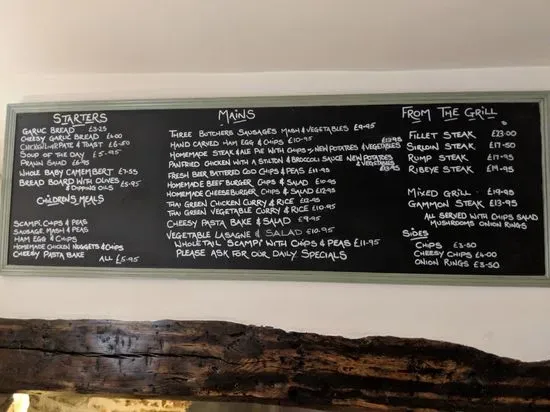 STARTERS
GARLIC BREAD £3.25
CHEESY GARLIC BREAD £4.00
CHICKEN LIVER PATE & TOAST £6.50
SOUP OF THE DAY £5.95
PRAWN SALAD £6.95
WHOLE BABY CAMEMBERT £7.55
BREAD BOARD WITH OLIVES £5.95
& DIPPING OILS
CHILDREN'S MEALS
SCAMPI CHIPS & PEAS
SAUSAGE MASH & PEAS
HAM EGG & CHIPS
HOMEMADE CHICKEN NUGGETS & CHIPS
CHEESY PASTA BAKE
ALL £5.95
MAINS
THREE BUTCHERS SAUSAGES MASH & VEGETABLES £9.95
HAND CARVED HAM EGG & CHIPS £10.95
HOMEMADE STEAK & ALE PIE WITH CHIPS OR NEW POTATOES & VEGETABLES £12.95
PANFRIED CHICKEN WITH A STILTON & BROCCOLI SAUCE NEW POTATOES
& VEGETABLES £13.95
FRESH BEER BATTERED COD CHIPS & PEAS £11.95
HOMEMADE BEEF BURGER CHIPS & SALAD £10.95
HOMEMADE CHEESEBURGER CHIPS & SALAD £12.95
THAI GREEN CHICKEN CURRY & RICE £12.95
THAI GREEN VEGETABLE CURRY & RICE £10.95
CHEESY PASTA BAKE & SALAD £9.95
VEGETABLE LASAGNE & SALAD £10.95
WHOLE TAIL SCAMPI WITH CHIPS & PEAS £11.95
PLEASE ASK FOR OUR DAILY SPECIALS
FROM THE GRILL
FILLET STEAK £23.00
SIRLOIN STEAK £17.50
RUMP STEAK £17.95
RIBEYE STEAK £19.95
MIXED GRILL £19.95
GAMMON STEAK £13.95
ALL SERVED WITH CHIPS SALAD
MUSHROOMS ONION RINGS
SIDES
CHIPS £3.50
CHEESY CHIPS £4.00
ONION RINGS £3.50